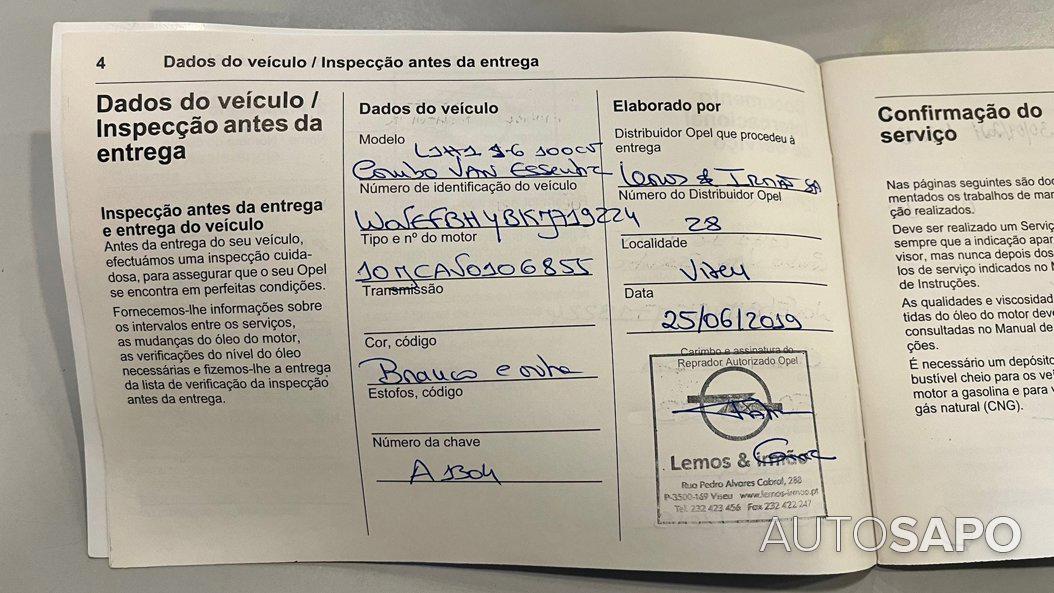 4 Dados do veículo / Inspecção antes da entrega
Dados do veículo /
Inspecção antes da
entrega
Inspecção antes da entrega
e entrega do veículo
Antes da entrega do seu veículo,
efectuámos uma inspecção cuida-
dosa, para assegurar que o seu Opel
se encontra em perfeitas condições.
Fornecemos-lhe informações sobre
os intervalos entre os serviços,
as mudanças do óleo do motor,
as verificações do nível do óleo
necessárias e fizemos-lhe a entrega
da lista de verificação da inspecção
antes da entrega.
Dados do veículo
Modelo
L1H1 1.6 100CV
Combo VAN Essentia
Número de identificação do veículo
Tipo e nº do motor
10JCAJ0106855
Transmissão
Cor, código
Branco
Estofos, código
Número da chave
A 1304
Elaborado por
Distribuidor Opel que procedeu à
entrega
Lemos & Irmão SA
Número do Distribuidor Opel
28
Localidade
Viseu
Data
25/06/2019
Carimbo e assinatura do
Reprador Autorizado Opel
Lemos & irmão
Rua Pedro Alvares Cabral, 288
P-3500-169 Viseu www.lemos-irmao.pt
Tel. 232 423 456 Fax 232 422 247
Confirmação do
serviço
Nas páginas seguintes são doc
mentados os trabalhos de man
ção realizados.
Deve ser realizado um Serviç
sempre que a indicação apar
visor, mas nunca depois dos
los de serviço indicados no M
de Instruções.
As qualidades e viscosidad
tidas do óleo do motor deve
consultadas no Manual de
ções.
É necessário um depósito
bustível cheio para os veí
motor a gasolina e para v
gás natural (CNG).
AUTOSAPO